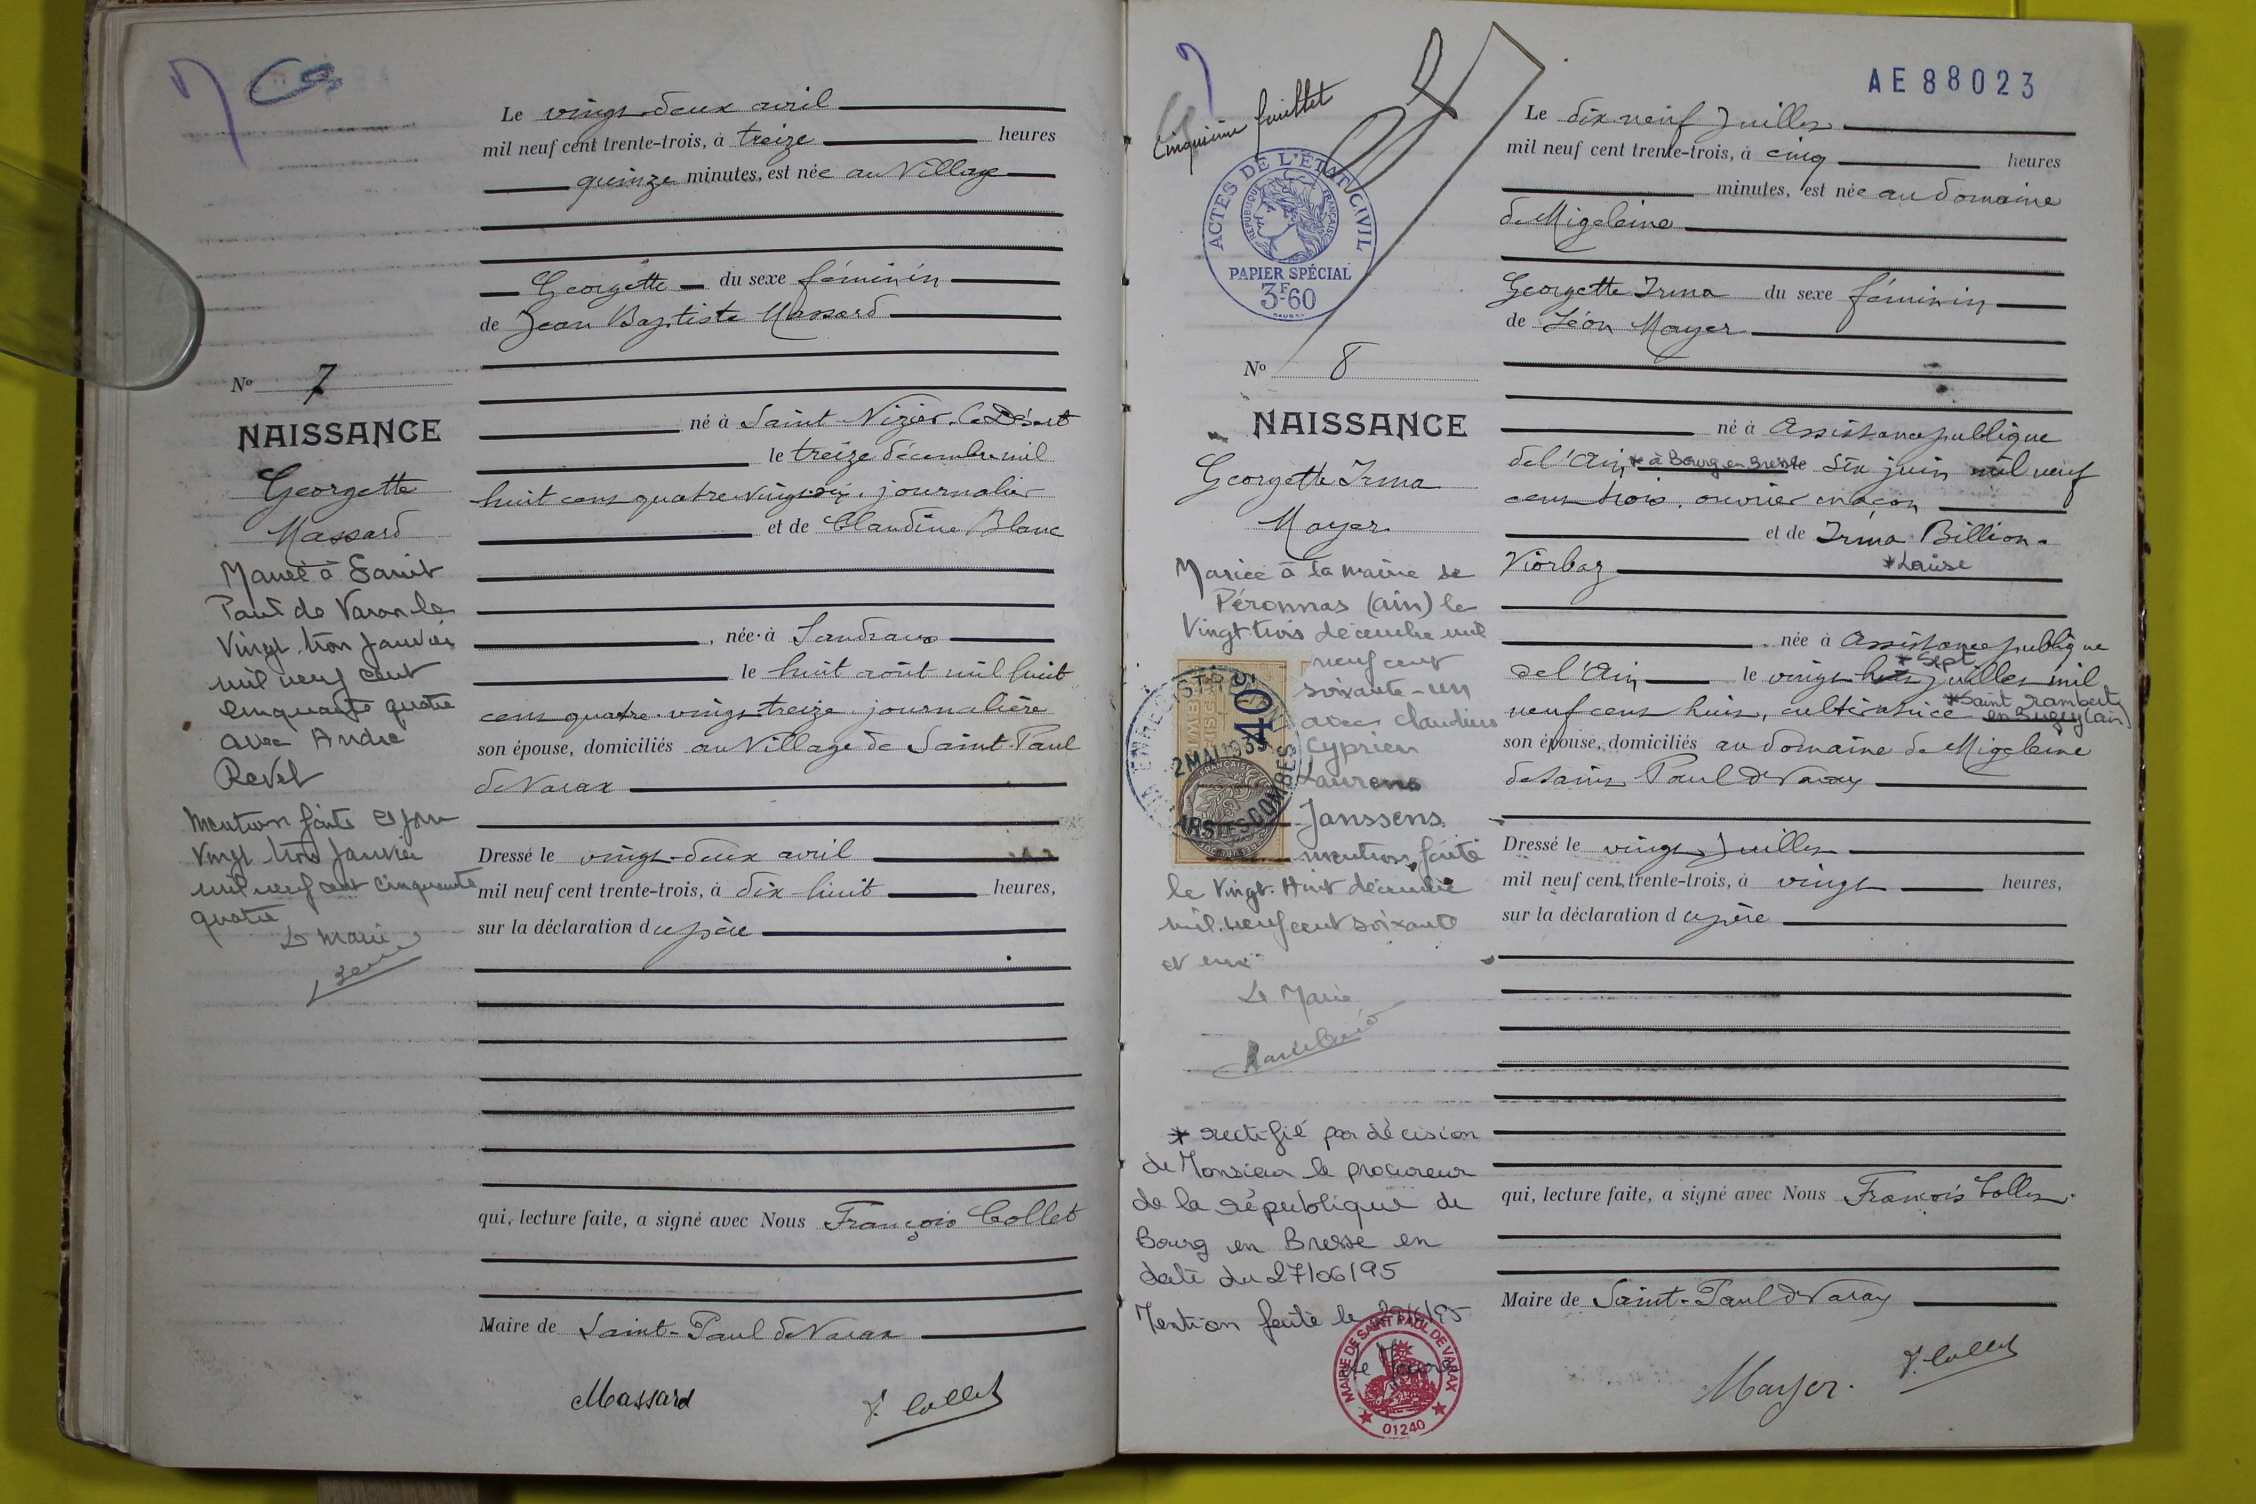 Le vingt-deux avril
mil neuf cent trente-trois, à treize heures
quinze minutes, est née au Village
Georgette du sexe féminin
de Jean Baptiste Massard
né à Saint-Nizier-le-Désert
le treize décembre mil
huit cent quatre vingt-six, journalier
et de Claudine Blanc
née à Sandrans
le huit août mil huit
cent quatre-vingt treize, journalière
son épouse, domiciliés au Village de Saint-Paul
de Varax
Dressé le vingt-deux avril
mil neuf cent trente-trois, à dix-huit heures,
sur la déclaration du père
qui, lecture faite, a signé avec Nous François Collet
Maire de Saint-Paul de Varax
Massard F. Collet
No 7
NAISSANCE
Georgette
Massard
Mariée à Saint
Paul de Varax le
Vingt trois Janvier
mil neuf cent
cinquante quatre
avec André
Revel
Mention faite ce jour
Vingt trois Janvier
mil neuf cent cinquante
quatre
Le Maire
Cinquième feuillet
ACTES DE L'ÉTAT CIVIL
RÉPUBLIQUE FRANÇAISE
PAPIER SPÉCIAL
3F60
No 8
NAISSANCE
Georgette Irma
Mayer
Mariée à la mairie de
Péronnas (Ain) le
Vingt trois décembre mil
neuf cent
soixante-un
avec Claudius
Cyprien
Laurent
Janssens
mention faite
le Vingt-Huit décembre
mil neuf cent soixante
et un
Le Maire
40
* rectifié par décision
de Monsieur le procureur
de la république de
Bourg en Bresse en
date du 27/06/95
Mention faite le
Le Maire
MAIRIE DE SAINT PAUL DE VARAX
01240
AE88023
Le dix-neuf Juillet
mil neuf cent trente-trois, à cinq heures
minutes, est née au domaine
de Migeleine
Georgette Irma du sexe féminin
de Léon Mayer
né à Assistance publique
de l'Ain * à Bourg en Bresse le six juin mil neuf
cent trois, ouvrier maçon
et de Irma Billion-
Viorbaz *Louise
née à Assistance publique
de l'Ain le vingt huit *sept juillet mil
neuf cent huit, cultivatrice *Saint Rambert
en Bugey (Ain)
son épouse, domiciliés au domaine de Migeleine
de Saint Paul de Varax
Dressé le vingt Juillet
mil neuf cent trente-trois, à vingt heures,
sur la déclaration du père
qui, lecture faite, a signé avec Nous François Collet
Maire de Saint-Paul de Varax
Mayer. F. Collet